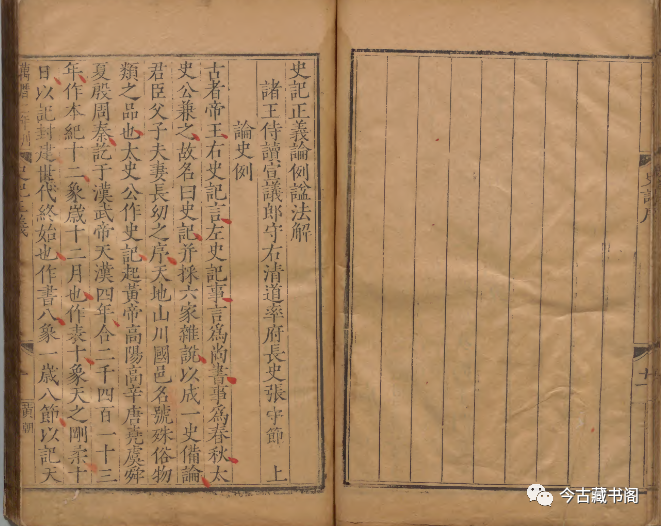 史記正義論例諡法解
諸王侍讀宣議郎守右清道率府長史張守節 上
論史例
古者帝王右史記言左史記事言為尚書事為春秋太
史公兼之故名曰史記并採六家雜說以成一史備論
君臣父子夫妻長幼之序天地山川國邑名號殊俗物
類之品也太史公作史記起黃帝高陽高辛唐堯虞舜
夏殷周秦訖于漢武帝天漢四年合二千四百一十三
年作本紀十二象歲十二月也作表十象天之剛柔十
日以記封建世代終始也作書八象一歲八節以記天
今古藏书阁